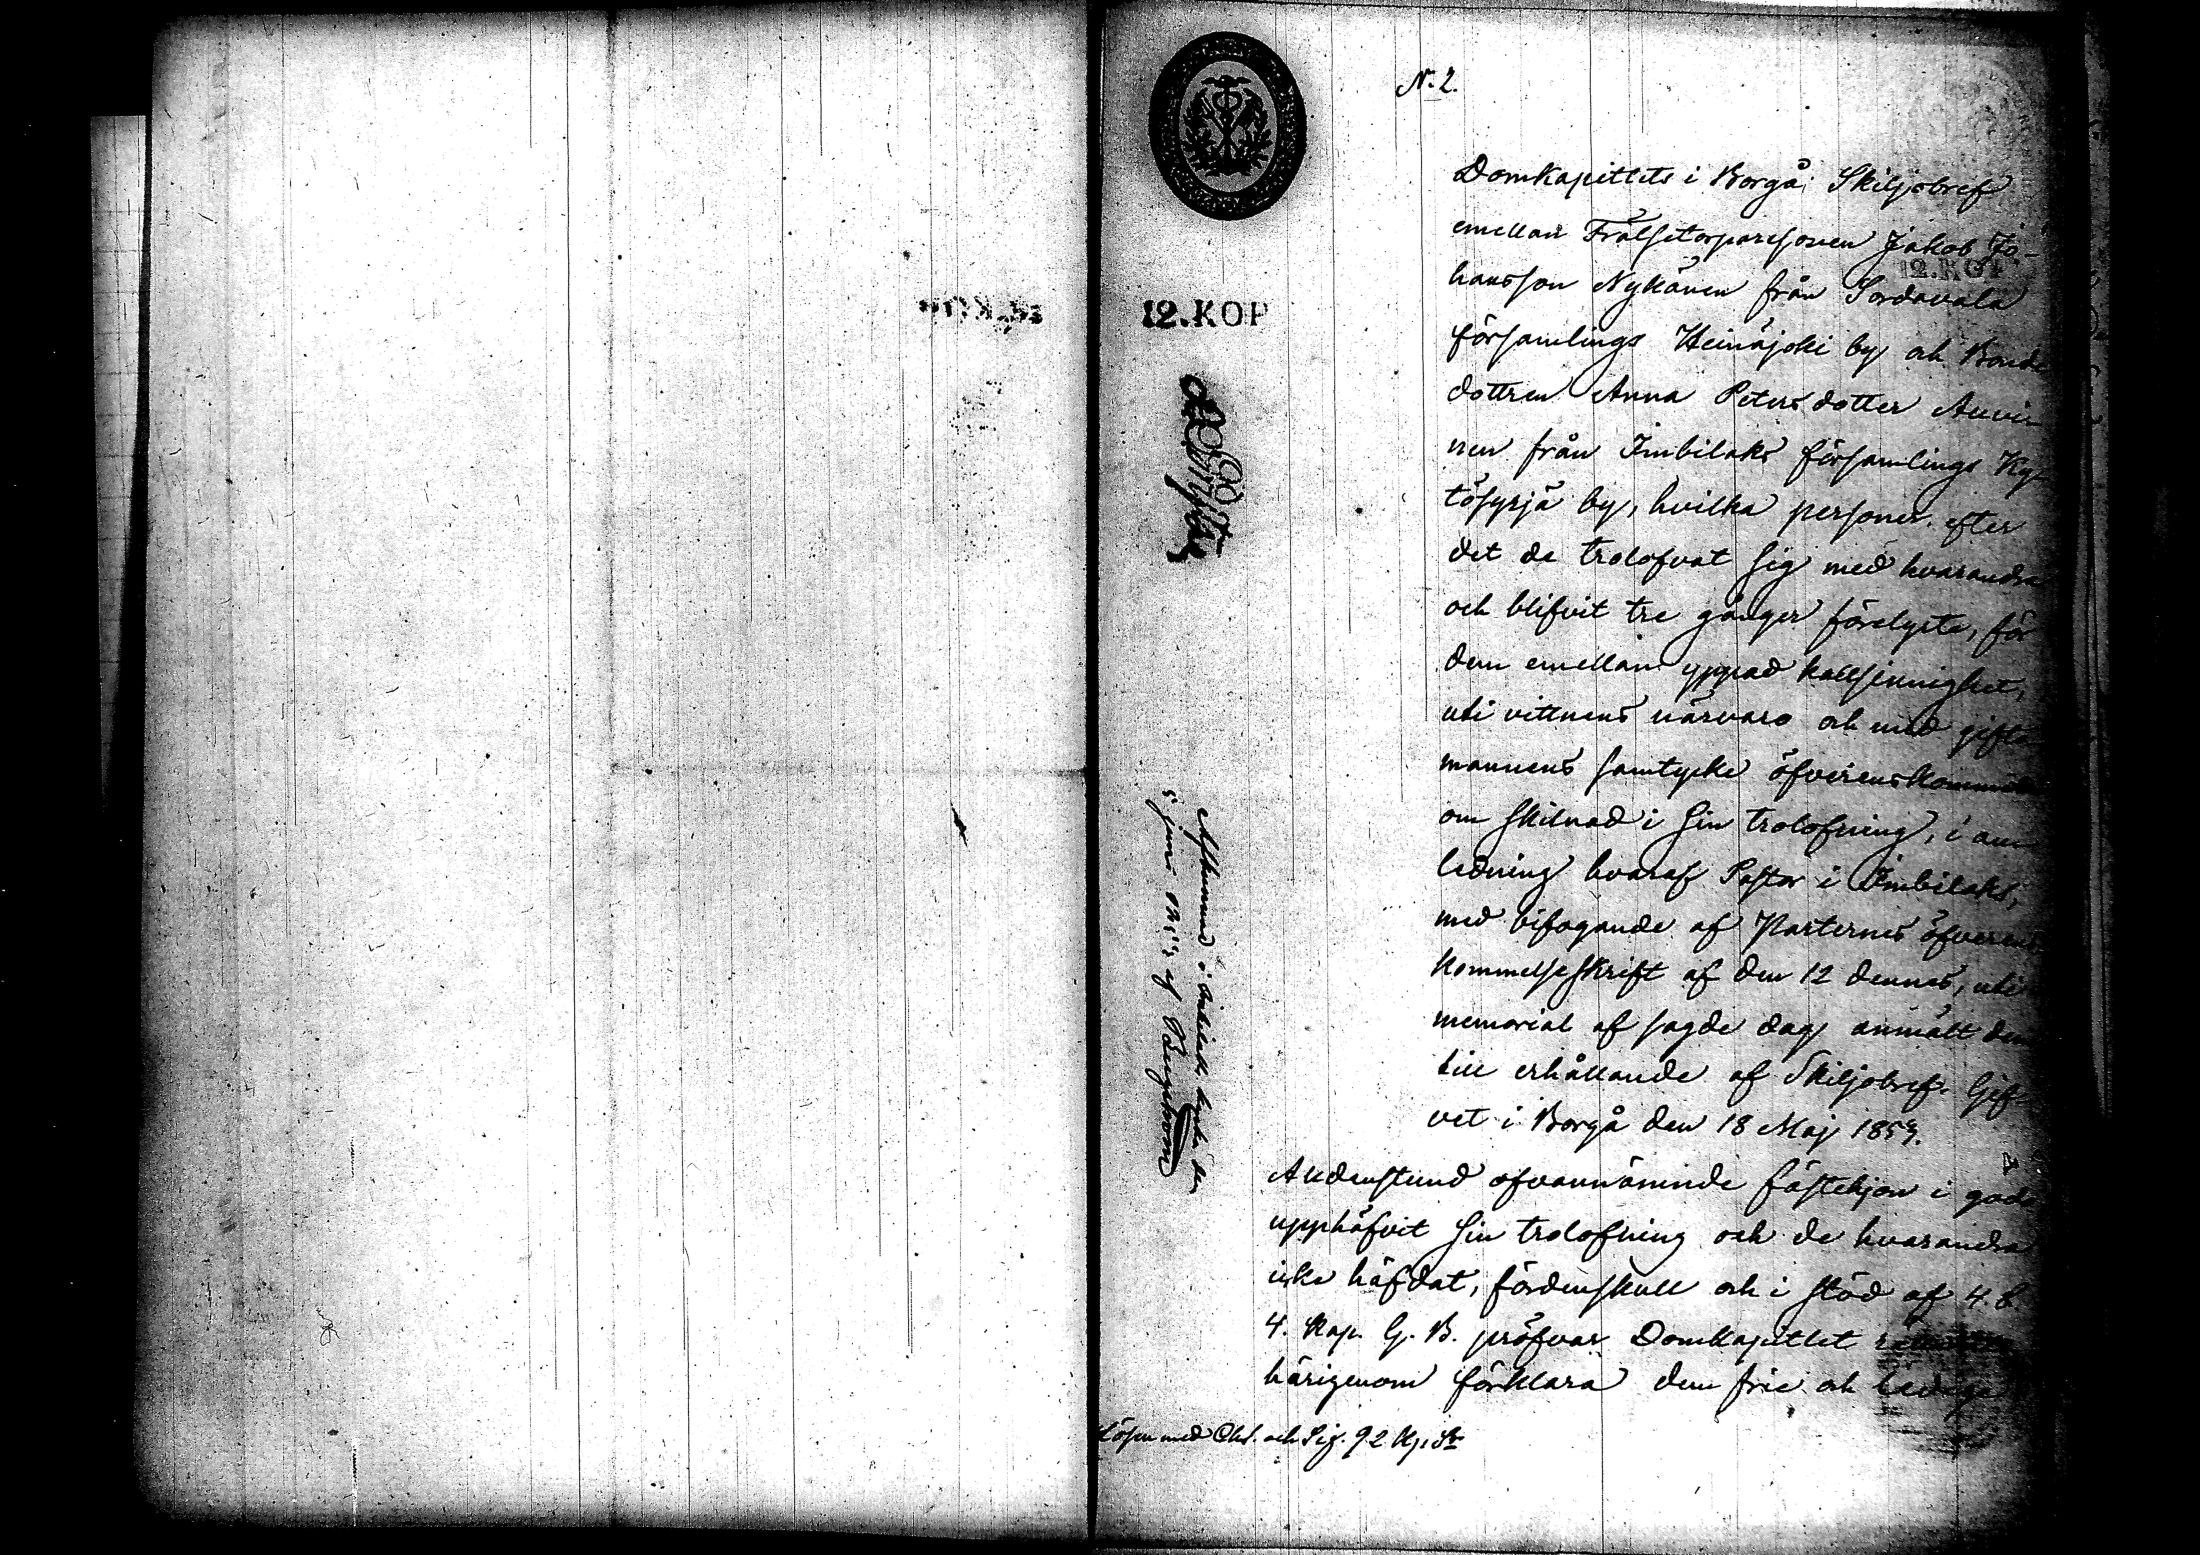 N. 2.
12. KOP
Domkapittlets i Borgå, Skiljobref
emellan Frälsetorparesonen Jakob Jo-
hansson Nykänen från Sordavala
församlings Heinäjoki by och Bonde
dottren Anna Petersdotter Auvi
nen från Imbilaks församlings Ky-
tösyrjä by, hvilka personer efter
det de trolofvat sig med hvarandra
och blifvit tre gånger förelyste, för
dem emellan yppad kallsinnighet,
uti vittnens närvaro och med gifto
mannens samtycke öfverenskommit
om skilnad i sin trolofning, i an
ledning hvaraf Pastor i Imbilaks,
med bifogande af Parternes öfverens
kommelseskrift af den 12 dennes, uti
memorial af sagde dag anmält dem
till erhållande af Skiljobref. Gif-
vet i Borgå den 18 Maj 1859.
Aldenstund ofvannämnde fästehjon i godo
upphäfvit sin trolofning och de hvarandra
icke häfdat, fördenskull och i stöd af 4. §.
4. Kap. G. B. pröfvar Domkapitlet
härigenom förklara dem frie och ledige
Lösen med Chs. och Sig. 92 kop. Sr
Afkunnad i Imbilaks kyrka den
5 Juni 1859 af Bergstrom